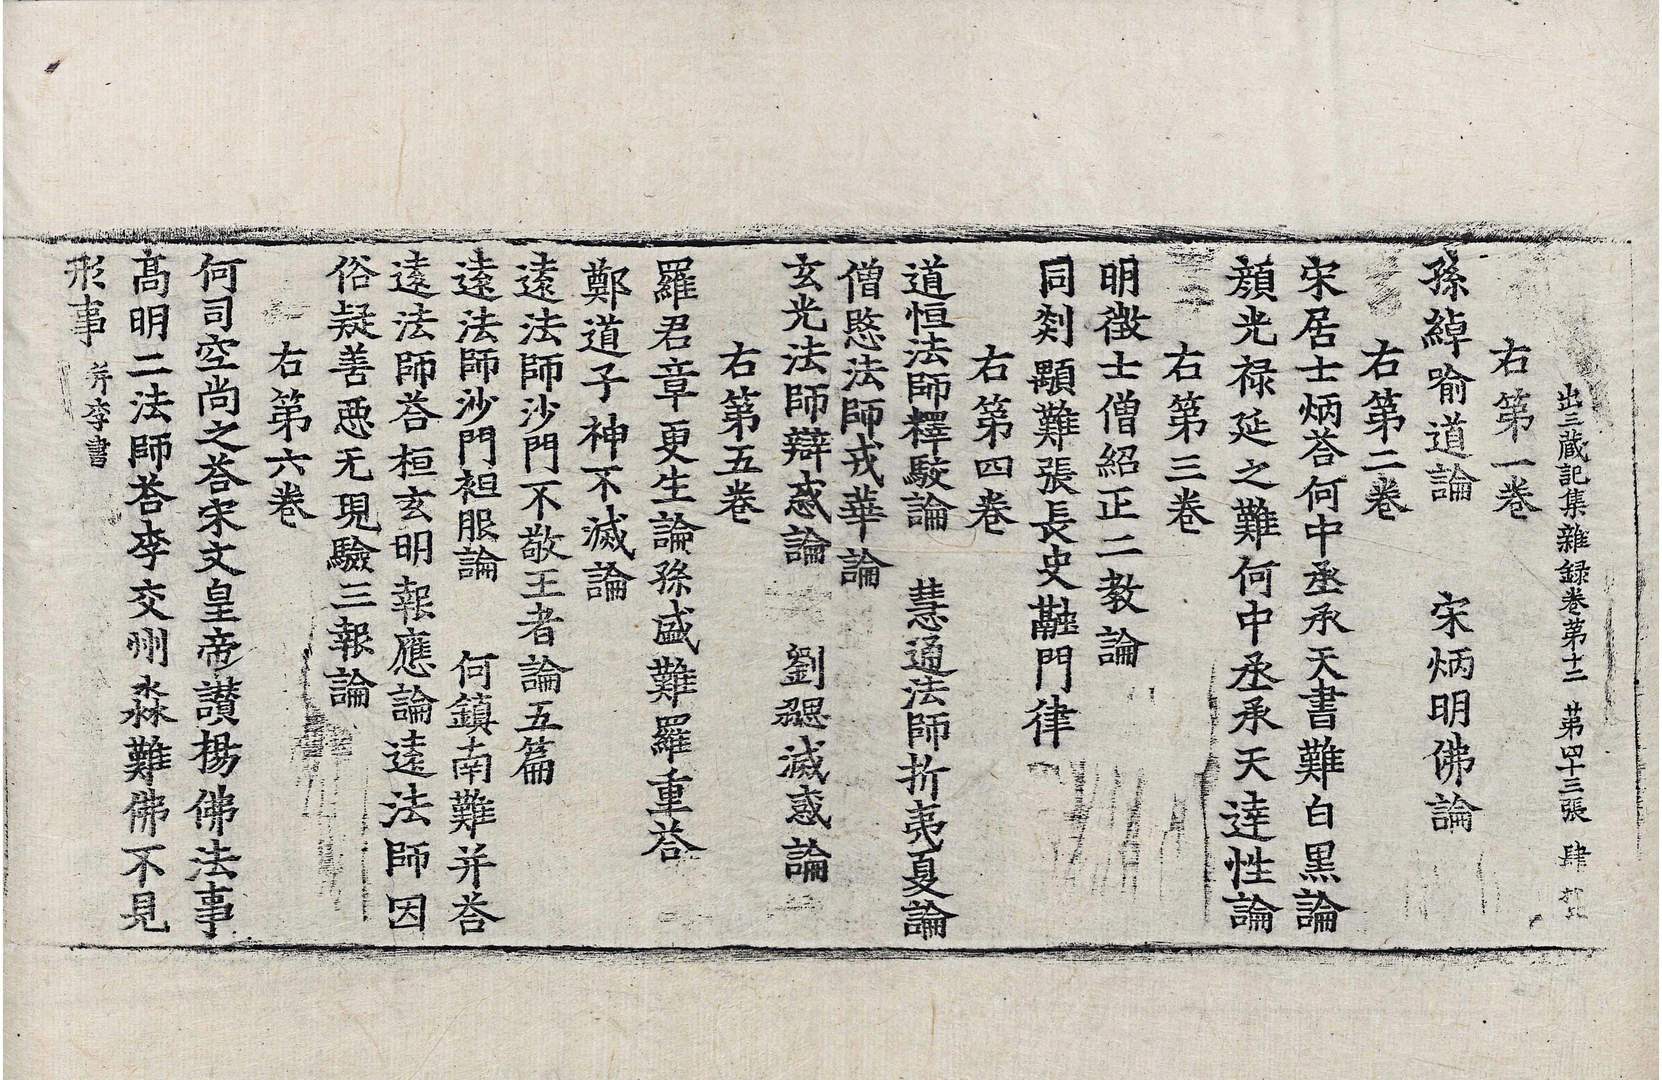 出三藏記集雜録卷第十二 苐四十三張 肆
右第一卷
孫綽喻道論 宋炳明佛論
右第二卷
宋居士炳荅何中丞承天書難白黒論
顔光禄延之難何中丞承天達性論
右第三卷
明徴士僧紹正二教論
同剡顯難張長史融門律
右第四卷
道恒法師釋駮論 慧通法師折夷夏論
僧愍法師戎華論
玄光法師辯惑論 劉勰滅惑論
右第五卷
羅君章更生論孫盛難羅重荅
鄭道子神不滅論
逺法師沙門不敬王者論五篇
逺法師沙門袒服論 何鎮南難并荅
逺法師荅桓玄明報應論逺法師因
俗疑善惡无現驗三報論
右第六卷
何司空尚之荅宋文皇帝讃楊佛法事
髙明二法師荅李交州淼難佛不見
形事 并李書